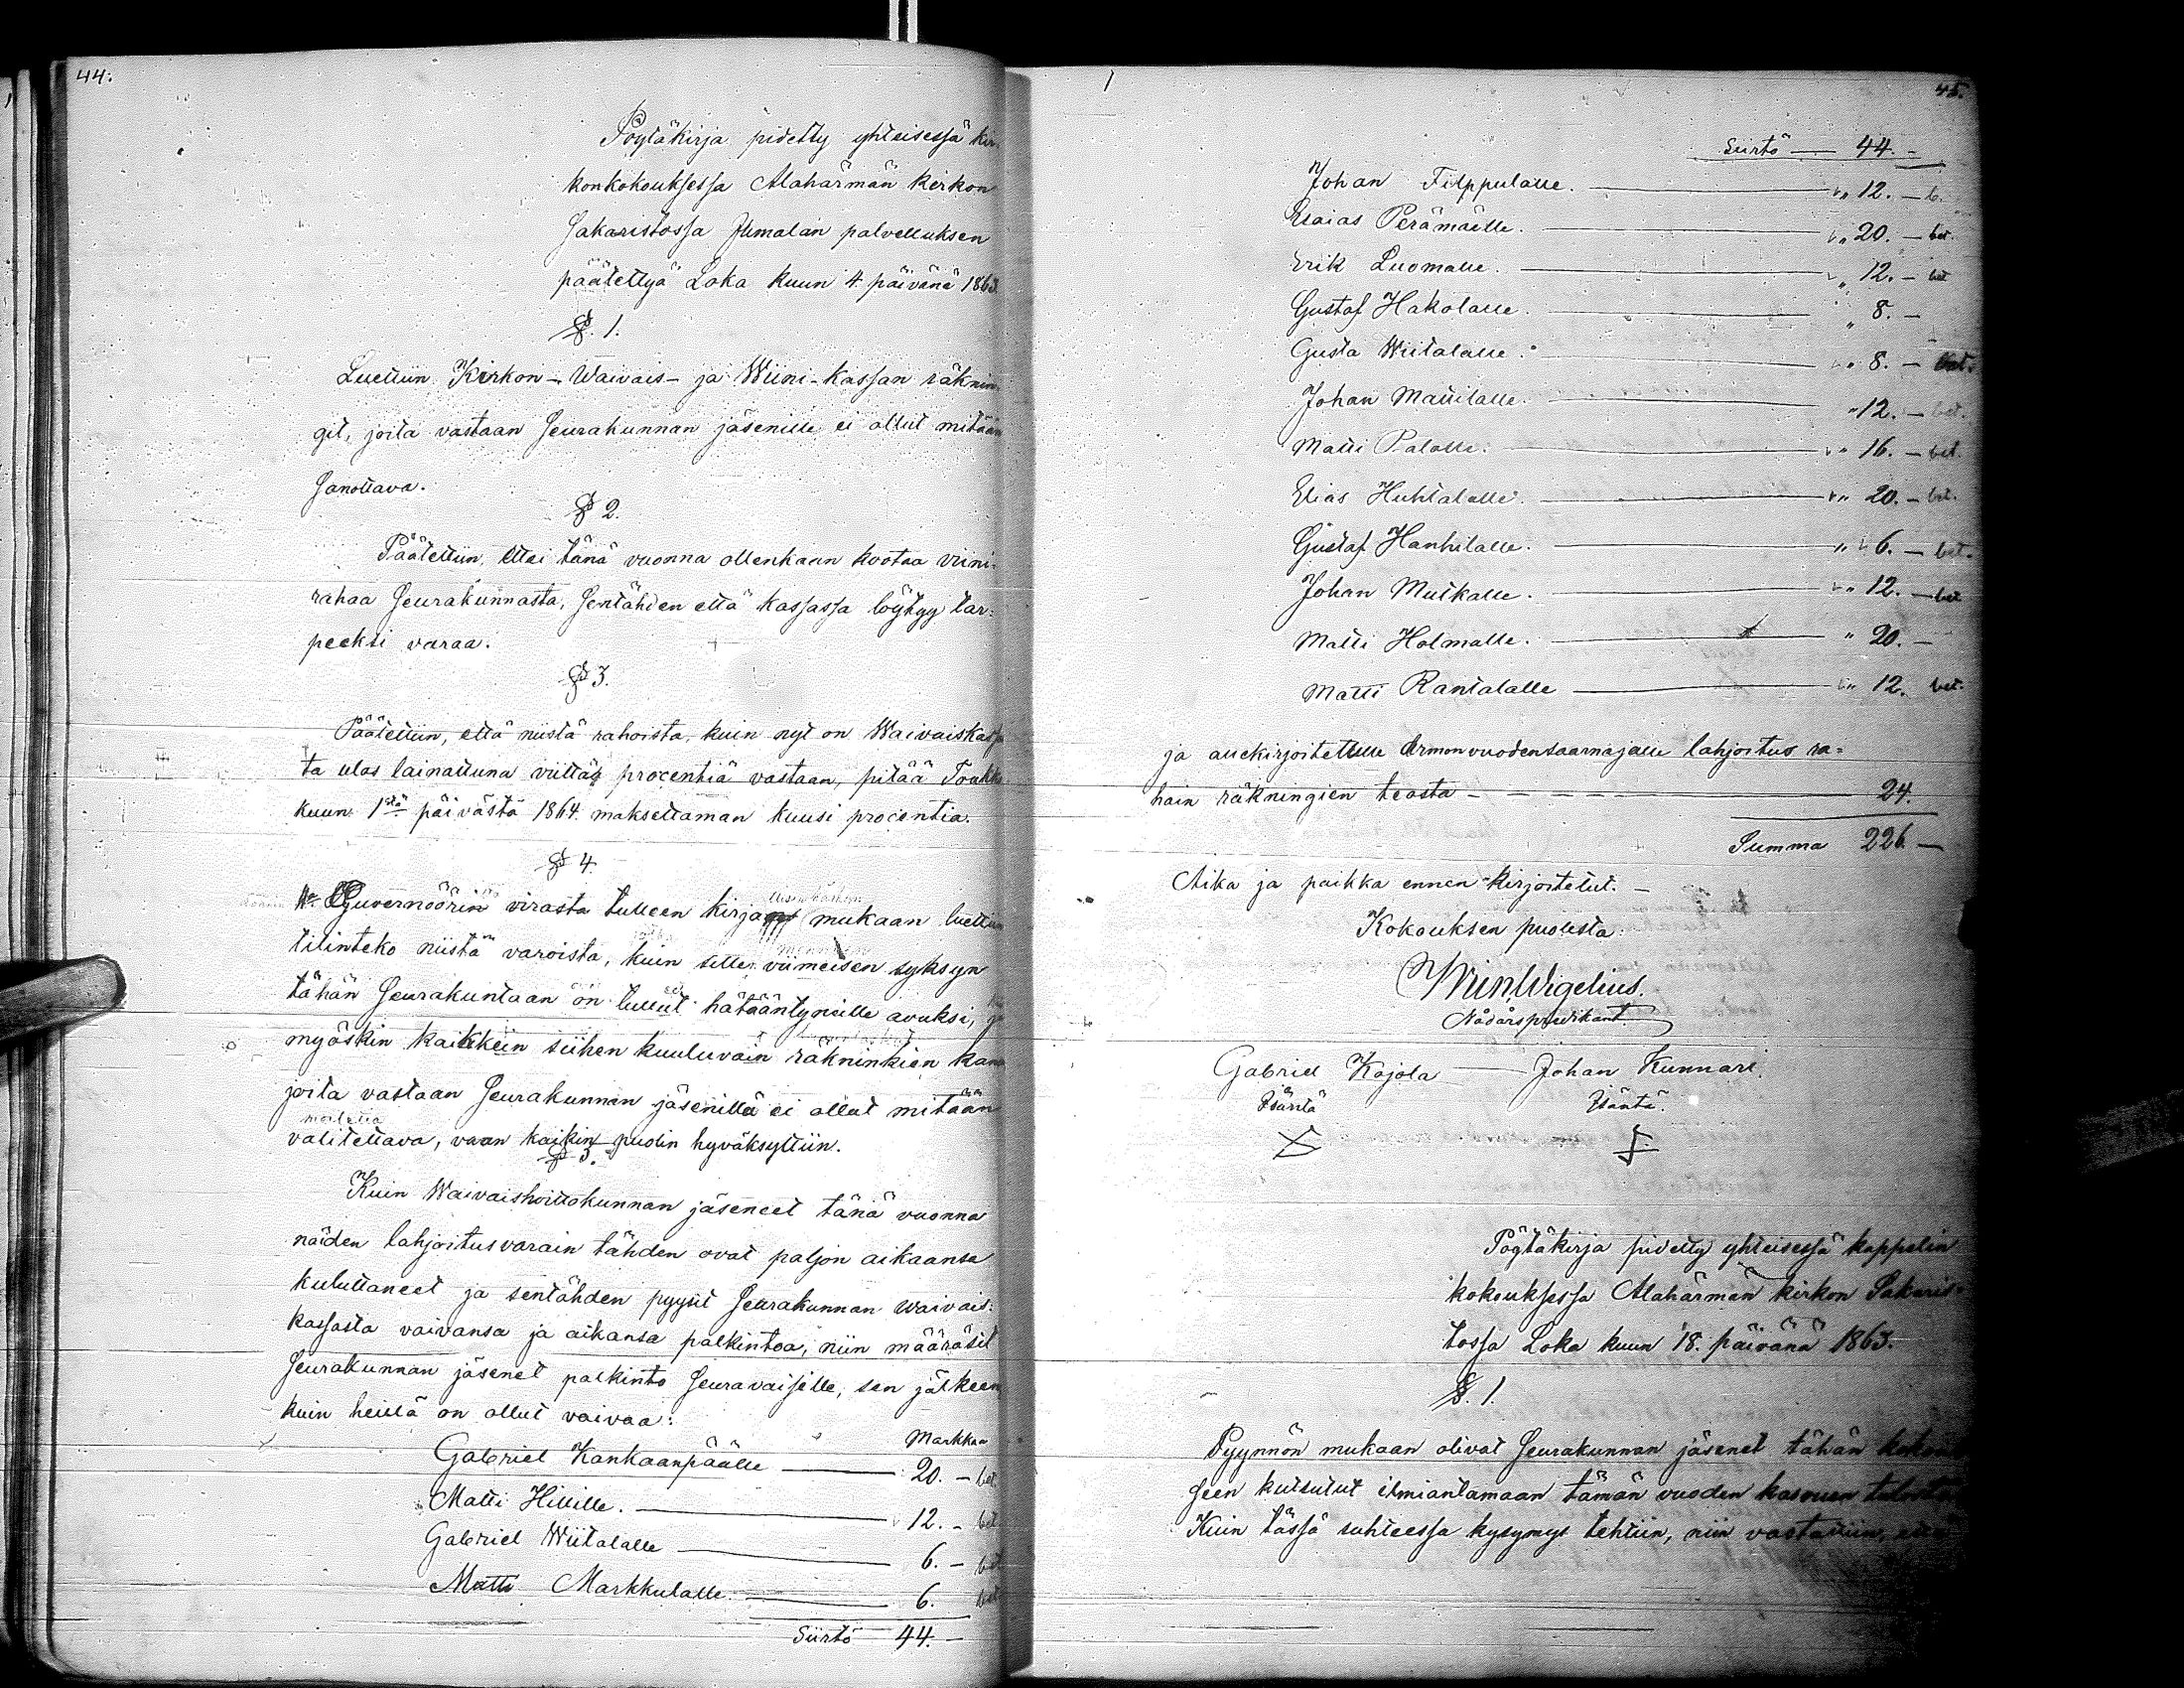 44.
Pöytäkirja pidetty yhteisessä kir-
konkokouksessa Alahärmän kirkon
Sakaristossa Jumalan palvelluksen
päätettyä Loka kuun 4. päivänä 1863.
§. 1.
Luettiin Kirkon- Waivais- ja Wiini-kassan räknin-
git, joita vastaan Seurakunnan jäsenille ei ollut mitään
sanottava.
§ 2.
Päätettiin, ettei tänä vuonna ollenkaan kootaa viini-
rahaa Seurakunnasta, sentähden että kassassa löytyy tar-
peeksi varaa.
§ 3.
Päätettiin, että niistä rahoista, kuin nyt on Waivaiskassa
ta ulos lainattuna viittä procentiä vastaan, pitää Toukko
kuun 1stä päivästä 1864 maksettaman kuusi procentia.
§ 4.
Guvernöörin virasta tulleen kirja mukaan luettiin
tilinteko niistä varoista, kuin sitten viimeisen syksyn
tähän Seurakuntaan on tullut hätääntyneille avuksi, ja
myöskin kaikkein siihen kuuluvain räkninkien kans
joita vastaan Seurakunnan jäsenillä ei ollut mitään
moitetta
valitettava, vaan kaikin puolin hyväksyttiin.
§ 5.
Kuin Waivaishoittokunnan jäseneet tänä vuonna
näiden lahjoitusvarain tähden ovat paljon aikaansa
kuluttaneet ja sentähden pyysit Seurakunnan waivais-
kassasta vaivansa ja aikansa palkintoa, niin määräsit
Seurakunnan jäsenet palkinto Seuravaisille, sen jälkeen
kuin heillä on ollut vaivaa:
Markkaa
Gabriel Kankaanpäälle — 20. — bet.
Matti Hillille. — 12. — bet
Gabriel Wiitalalle — 6. — bet
Matti Markkulalle — 6. bet
Siirto 44. —
45.
Siirto — 44. —
Johan Filppulalle. — " 12. — b.
Esaias Perämäelle. — " 20. — bet.
Erik Luomalle. — " 12. — bet
Gustaf Hakolalle. — " 8. —
Gusta Wiitalalle. — " 8. — bet.
Johan Mattilalle. — " 12. — bet.
Matti Palolle. — " 16. — bet.
Elias Huhtalalle. — " 20. — bet.
Gustaf Hanhilalle. — " 6. — bet.
Johan Mutkalle. — " 12. — bet
Matti Holmalle. — " 20. —
Matti Rantalalle — " 12. bet.
ja allekirjoitettulle Armonvuodensaarnajalle lahjoitus ra-
hain räkningien teosta — 24.
Summa 226. —
Aika ja paikka ennen kirjoitetut. —
Kokouksen puolesta:
Wilh. Wigelius.
Nådårspredikant.
Gabriel Kojola — Johan Kunnari
Isäntä Isäntä.
Pöytäkirja pidetty yhteisessä kappelin
kokouksessa Alahärmän kirkon Sakaris-
tossa Loka kuun 18. päivänä 1863.
§. 1.
Pyynnön mukaan olivat Seurakunnan jäsenet tähän
seen kutsutut ilmiantamaan tämän vuoden kasvun
Kuin tässä suhteessa kysymys tehtiin, niin vastattiin,